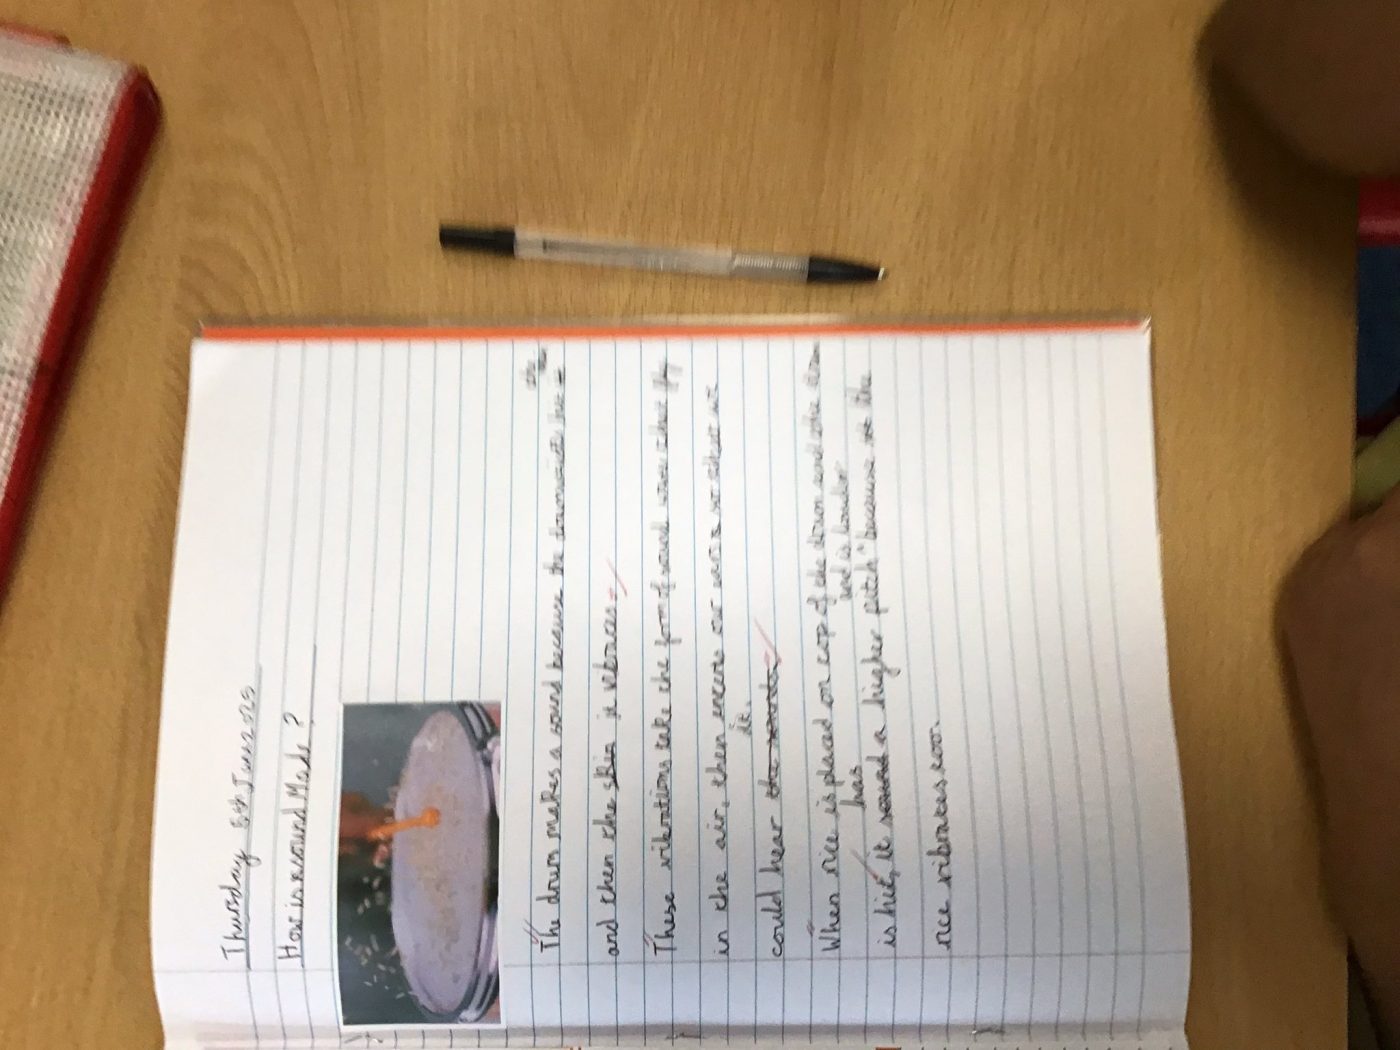 Thursday 5th June 2025
How is a sound Made?
The drum makes a sound because the drumstick hit the
and then the skin it vibrates.
These vibrations take the form of sound waves that
in the air, then enters our ears so that we
could hear the sounds it.
When rice is placed on top of the drum and the drum
is hit, it sound has a higher pitch and is louder because the
rice vibrates too.